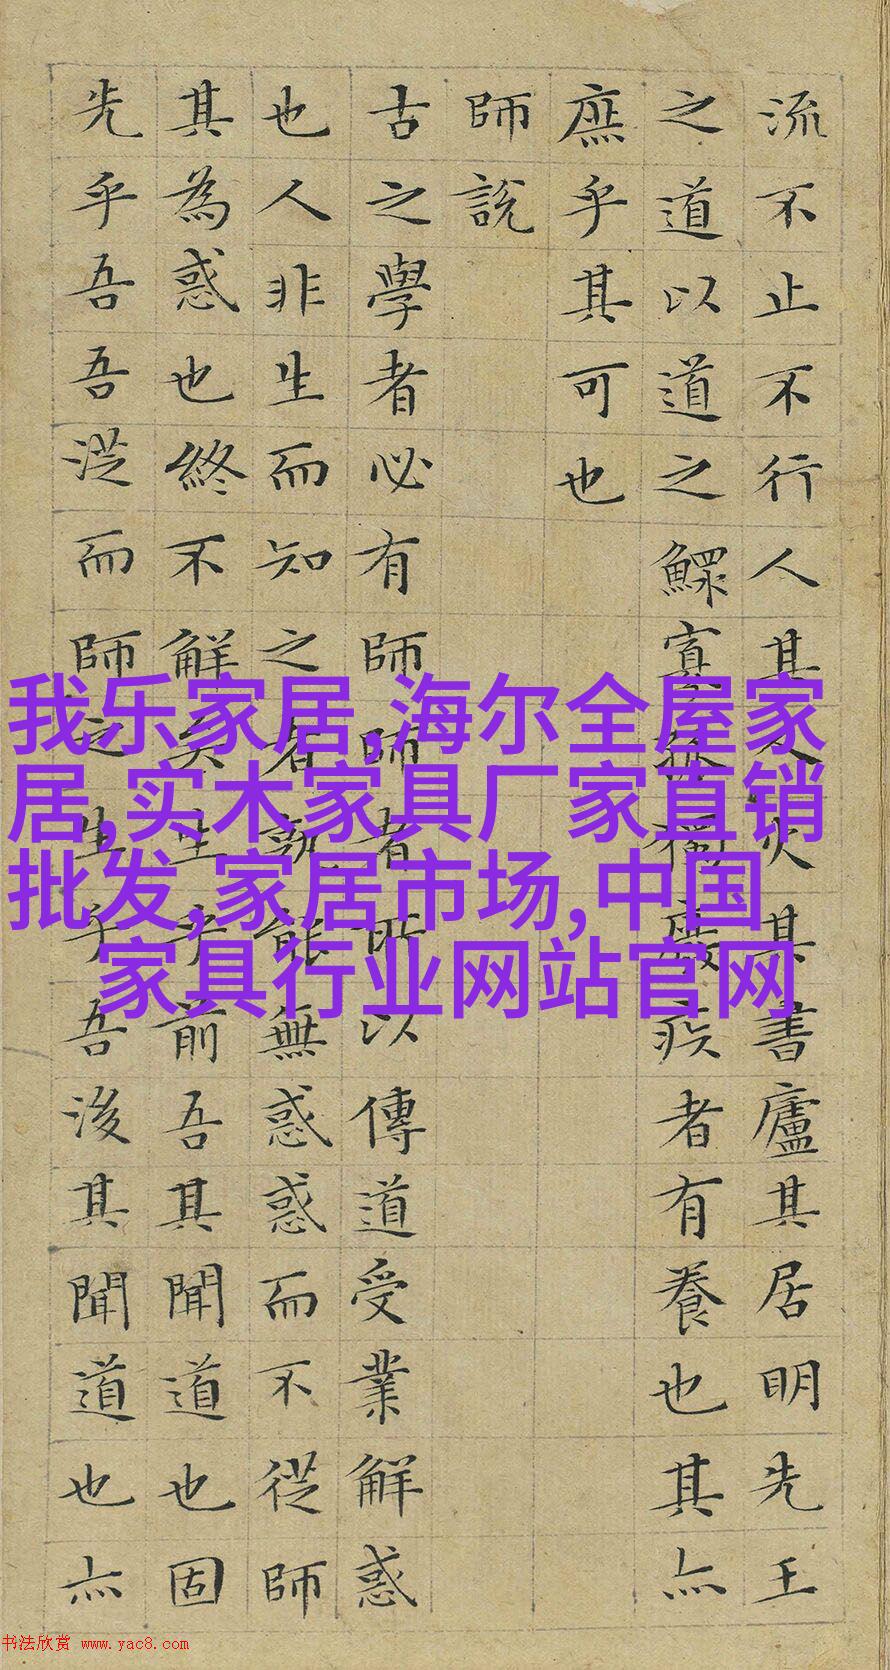 流不止不行人其人火其書廬其居明先王
之道以道之鰥寡孤獨廢疾者有養也其亦
庶乎其可也
師說
古之學者必有師師者所以傳道受業解惑
也人非生而知之者孰能無惑惑而不從師
其為惑也終不解矣生乎前吾其聞道也固
先乎吾吾從而師之生乎吾後其聞道也亦
我乐家居,海尔全屋家
居,实木家具厂家直销
批发,家居市场,中国
家具行业网站官网
书法欣赏 www.yac8.com